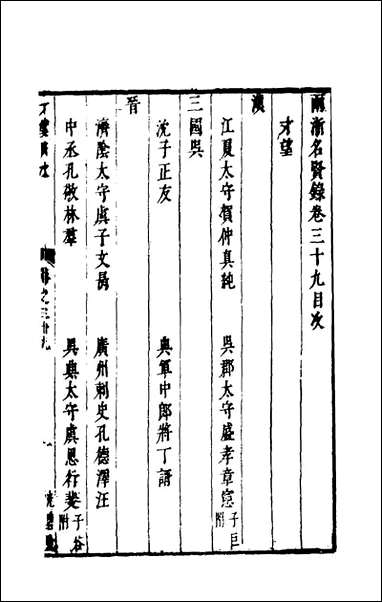 兩浙名賢錄卷三十九目次
才望
漢
江夏太守賀仲真純
吳郡太守盛孝章憲子匡附
三國吳
沈子正友
典軍中郎將丁諝
晉
濟陰太守虞子文長
廣州刺史孔德澤汪
中丞孔敬林羣
吳興太守虞思行斐子谷附
卷之三十九
一